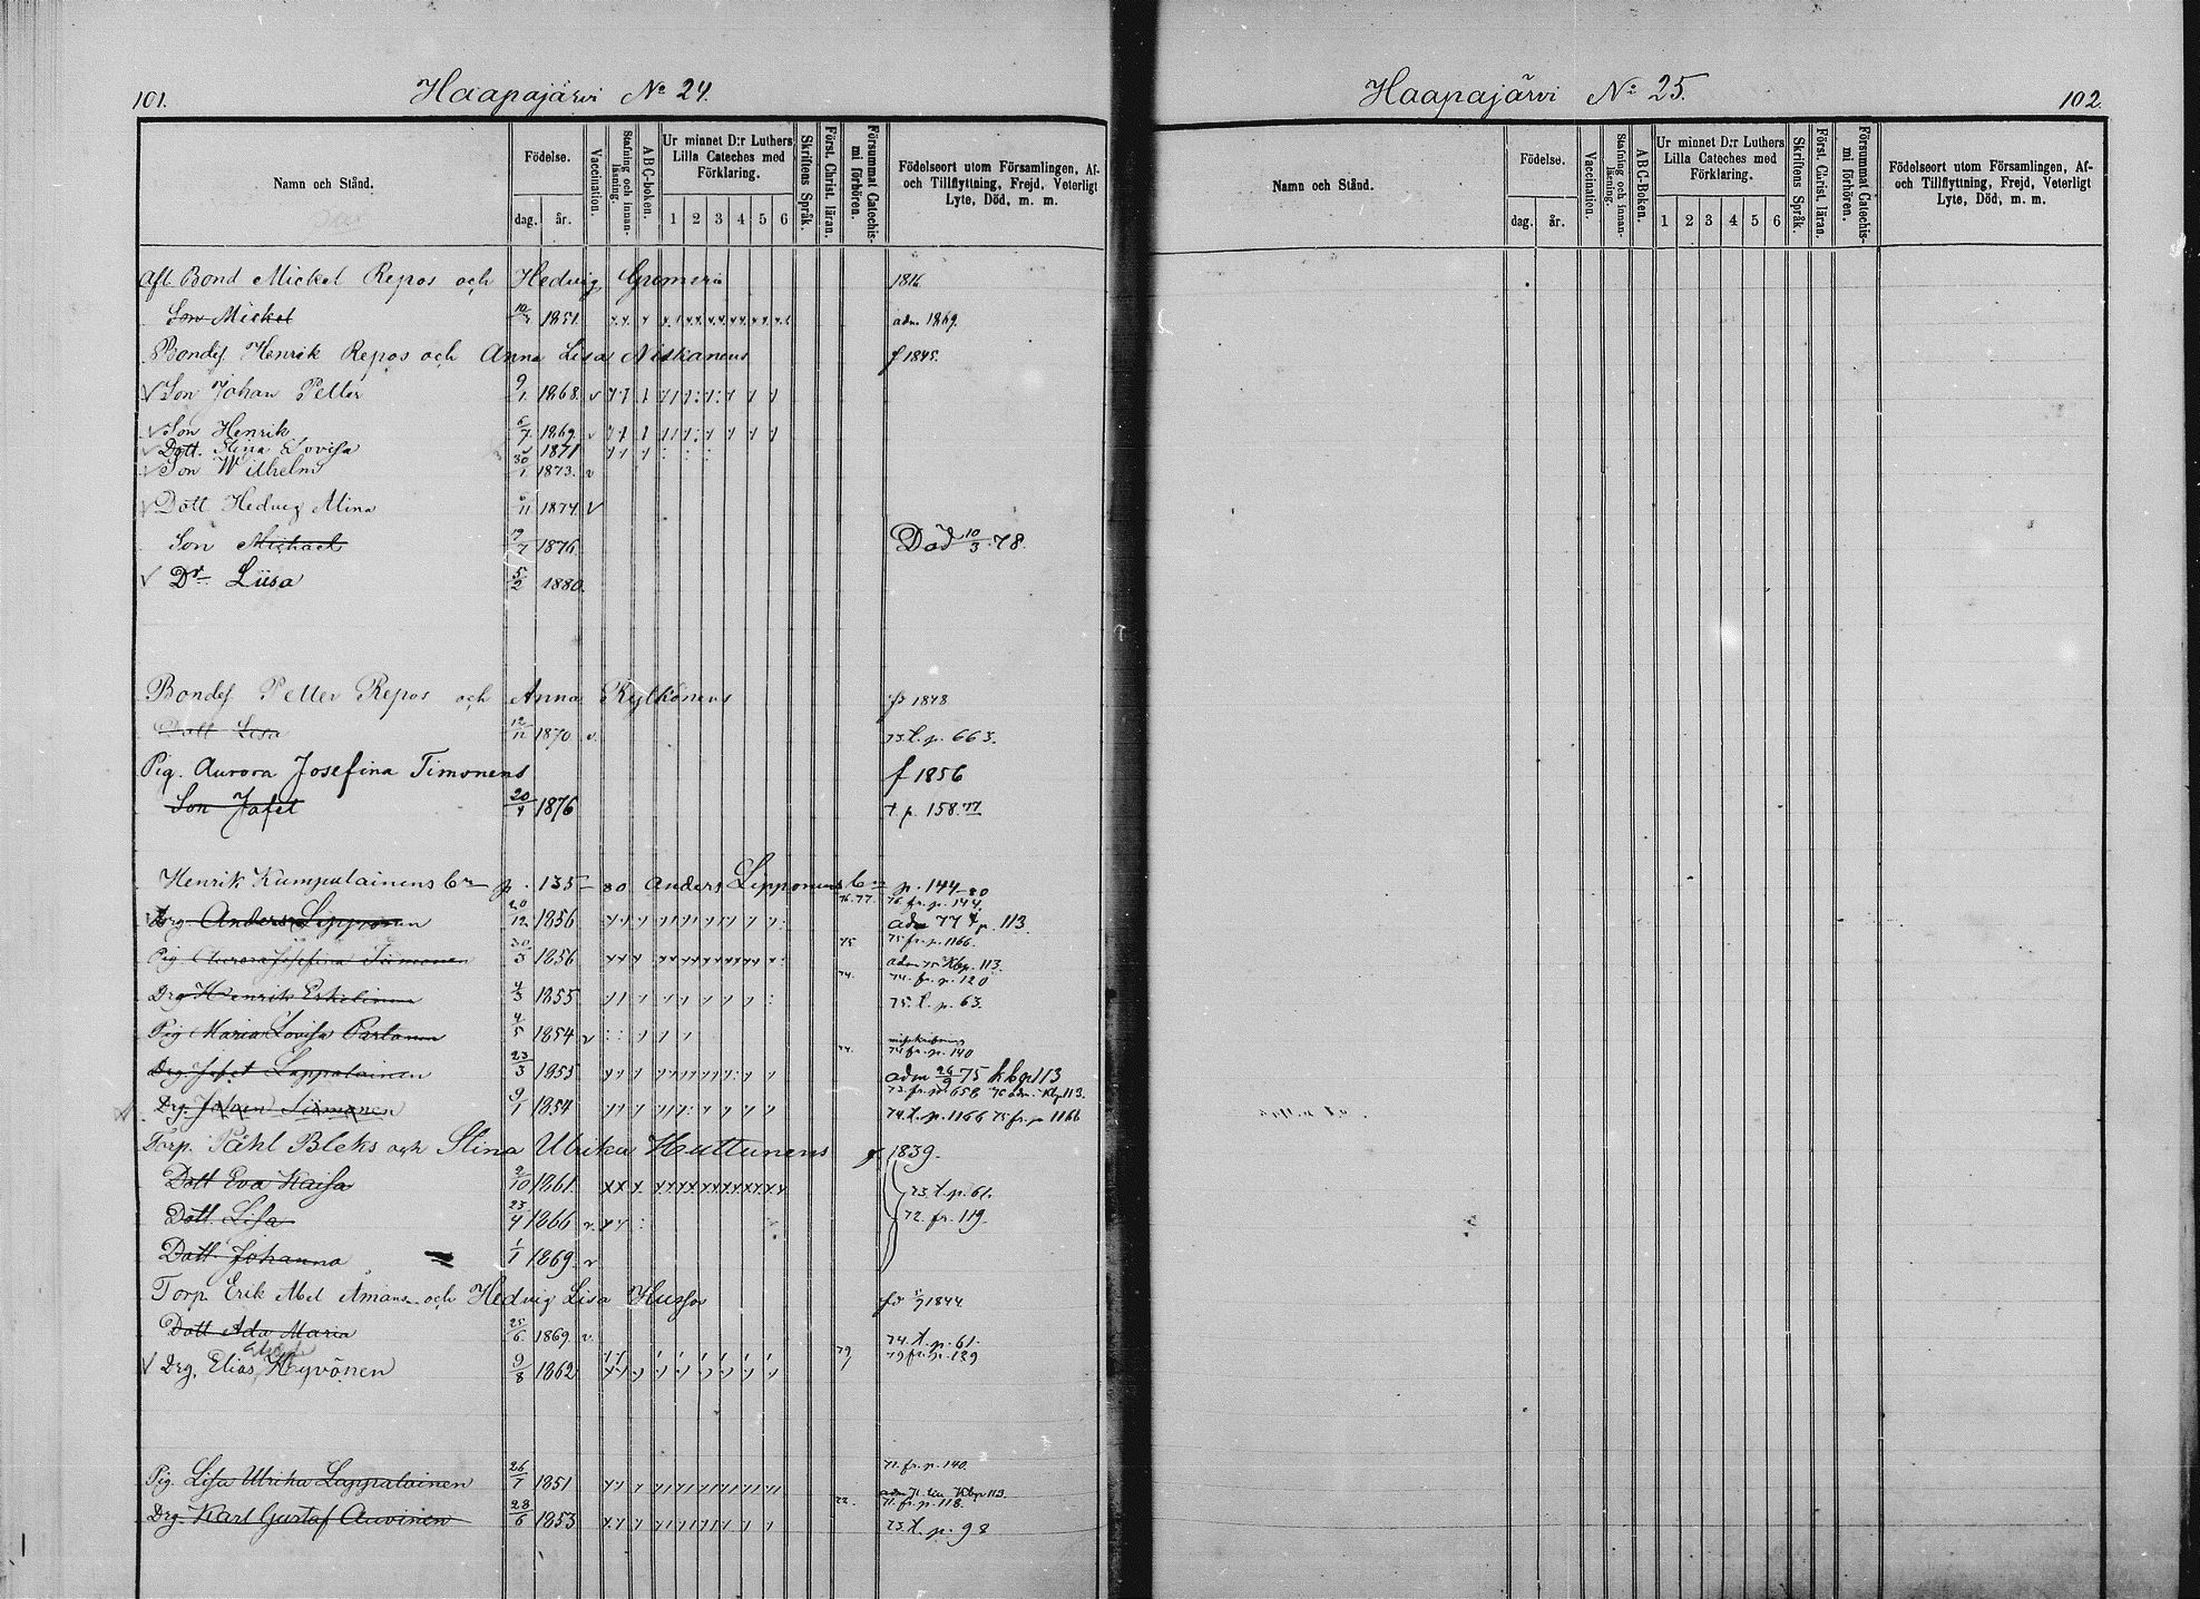 101.
Haapajärvi No 24.
Namn och Stånd.
Födelse.
dag. år.
Vaccination.
Stafning och innan-läsning.
ABC-boken.
Ur minnet D:r Luthers Lilla Cateches med Förklaring.
1 2 3 4 5 6
Skriftens Språk.
Först. Christ. läran.
Försummat Catechis-mi förhören.
Födelseort utom Församlingen, Af- och Tillflyttning, Frejd, Veterligt Lyte, Död, m. m.
Afl. Bond Mickel Repos och Hedvig 1816
Son Mickel 1851. adm. 1869.
Bondes. Henrik Repos och Anna Lisa Niskanens f 1845.
√ Son Johan Petter 9/1 1868. v
√ Son Henrik 6/7 1869 v
√ Dott. Stina Lovisa 1871
√ Son Wilhelm 30/1 1873. v
√ Dott Hedvig Mina 1874. v
Son Michael 1876. Död 10/3 78.
√ Dr Liisa 5/2 1880.
Bondes. Petter Repos och Anna 1848
Dott Lisa 12/11 1870 v. 73. t. p. 663.
Pig. Aurora Josefina Timonens f 1856
Son Jafet 20/4 1876 t. p. 158. 77
Henrik Kumpulainens p. 135 - 80 Anders Lipponens p. 144 - 80
76. 77. 76. fr. p. 144.
Drg. Anders Lipponen 20/12 1856 adm 77 t p. 113
75 75 fr. p. 1166.
Pig. Aurora Josefina Timonen 30/3 1856 adm 75 Kbp. 113.
74. 74. fr. p. 120
Drg Henrik Eskelinen 4/3 1855 75. t. p. 63.
Pig Maria Lovisa Partanen 4/5 1854 v
74. 74 fr. p. 140
Drg Jafet Lappalainen 23/3 1855 adm 26/9 75 kbp 113
Drg. Johan Timonen 9/1 1854 74. t. p. 1166 75 fr. p 1166
Torp. Påhl Bleks och Stina Ulrika Huttunens f 1839.
Dott Eva Kaisa 2/10 1861. 73. t. p. 61.
Dott. Lisa 23/4 1866 v. 72. fr. 119.
Dott. Johanna 1/1 1869. v
Torp. Erik Abel Amans och Hedvig Lisa Hussos 1844.
Dott Ada Maria 25/6. 1869. v. 74. t. p. 61.
79 79 fr. p. 129
√ Drg. Elias Hyvönen 9/8 1862
71. fr. p. 140
Pig. Lisa Ulrika Lappalainen 26/7 1851
Kbp 113.
72. 71. fr. p. 118.
Drg. Karl Gustaf Auvinen 28/6 1853 73. t. p. 98
Haapajärvi No 25.
102.
Namn och Stånd.
Födelse.
dag. år.
Vaccination.
Stafning och innan-läsning.
ABC-Boken.
Ur minnet D:r Luthers Lilla Cateches med Förklaring.
1 2 3 4 5 6
Skriftens Språk.
Först. Christ. läran.
Försummat Catechis-mi förhören.
Födelseort utom Församlingen, Af- och Tillflyttning, Frejd, Veterligt Lyte, Död, m. m.